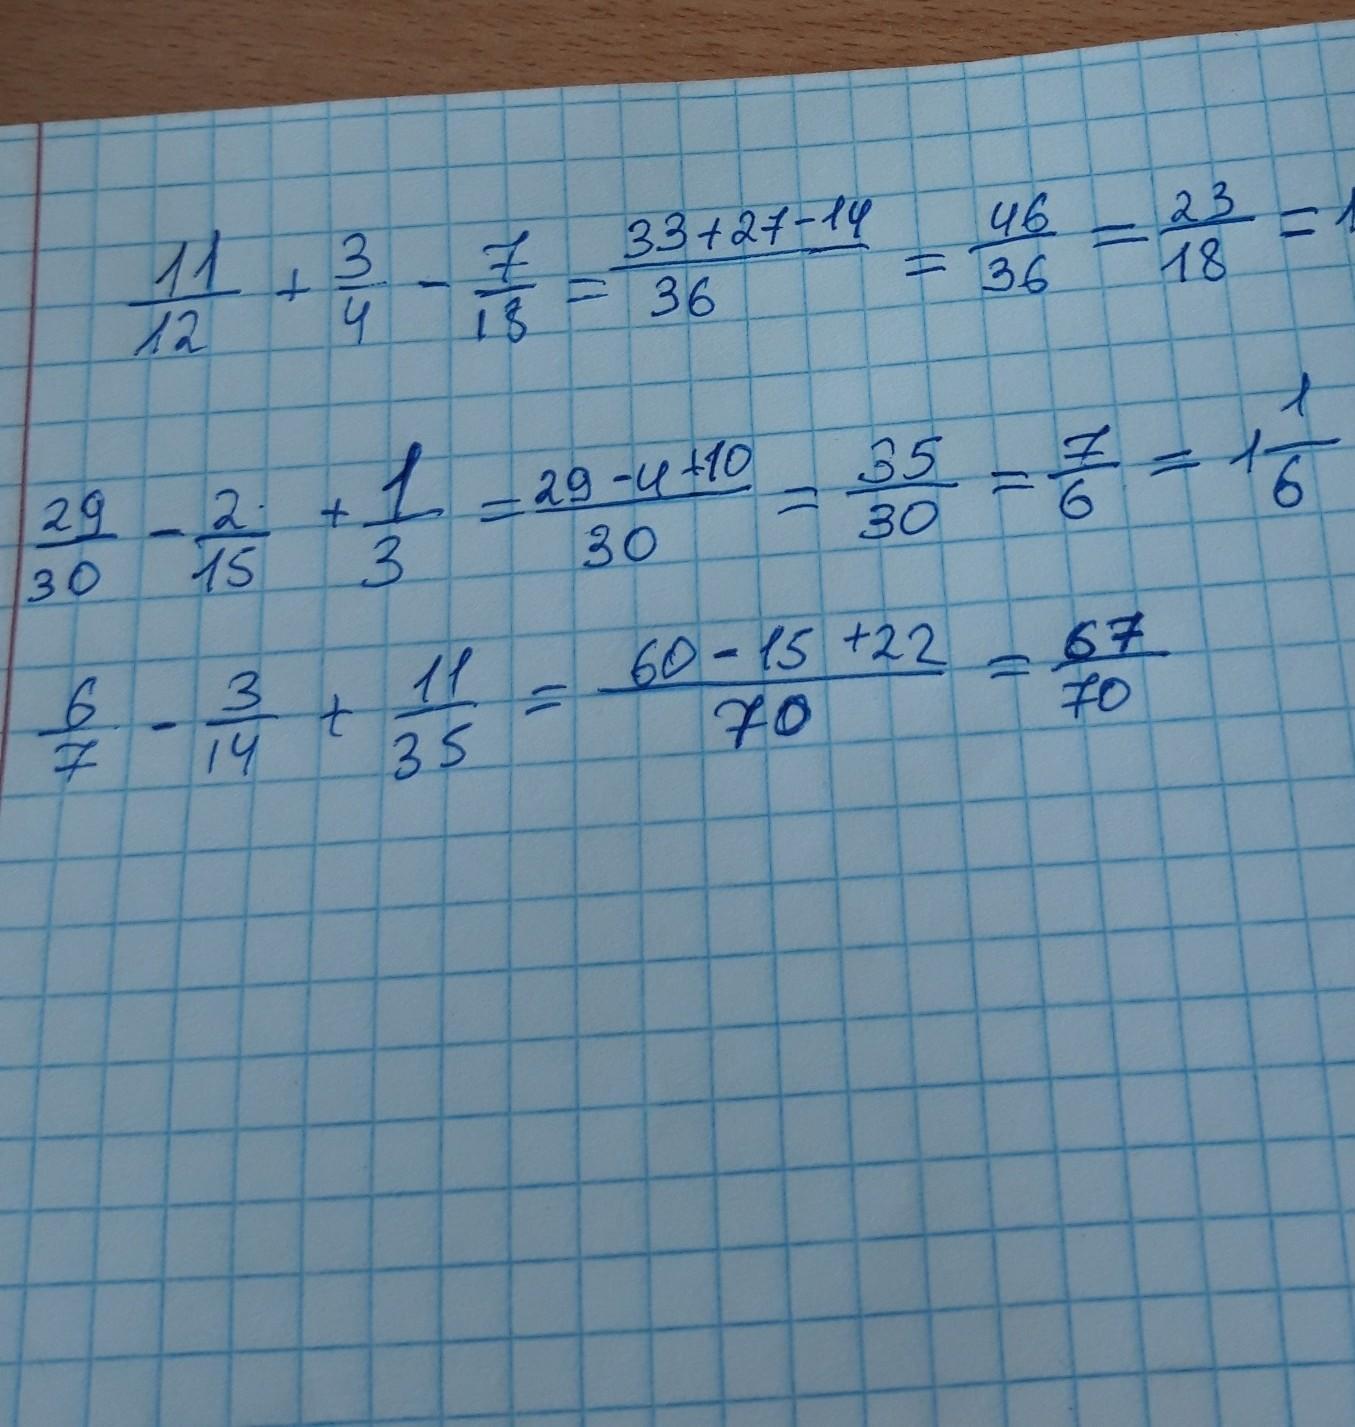 11/12 + 3/4 - 7/18 = (33+27-14)/36 = 46/36 = 23/18 = 1
29/30 - 2/15 + 1/3 = (29-4+10)/30 = 35/30 = 7/6 = 1 1/6
6/7 - 3/14 + 11/35 = (60-15+22)/70 = 67/70